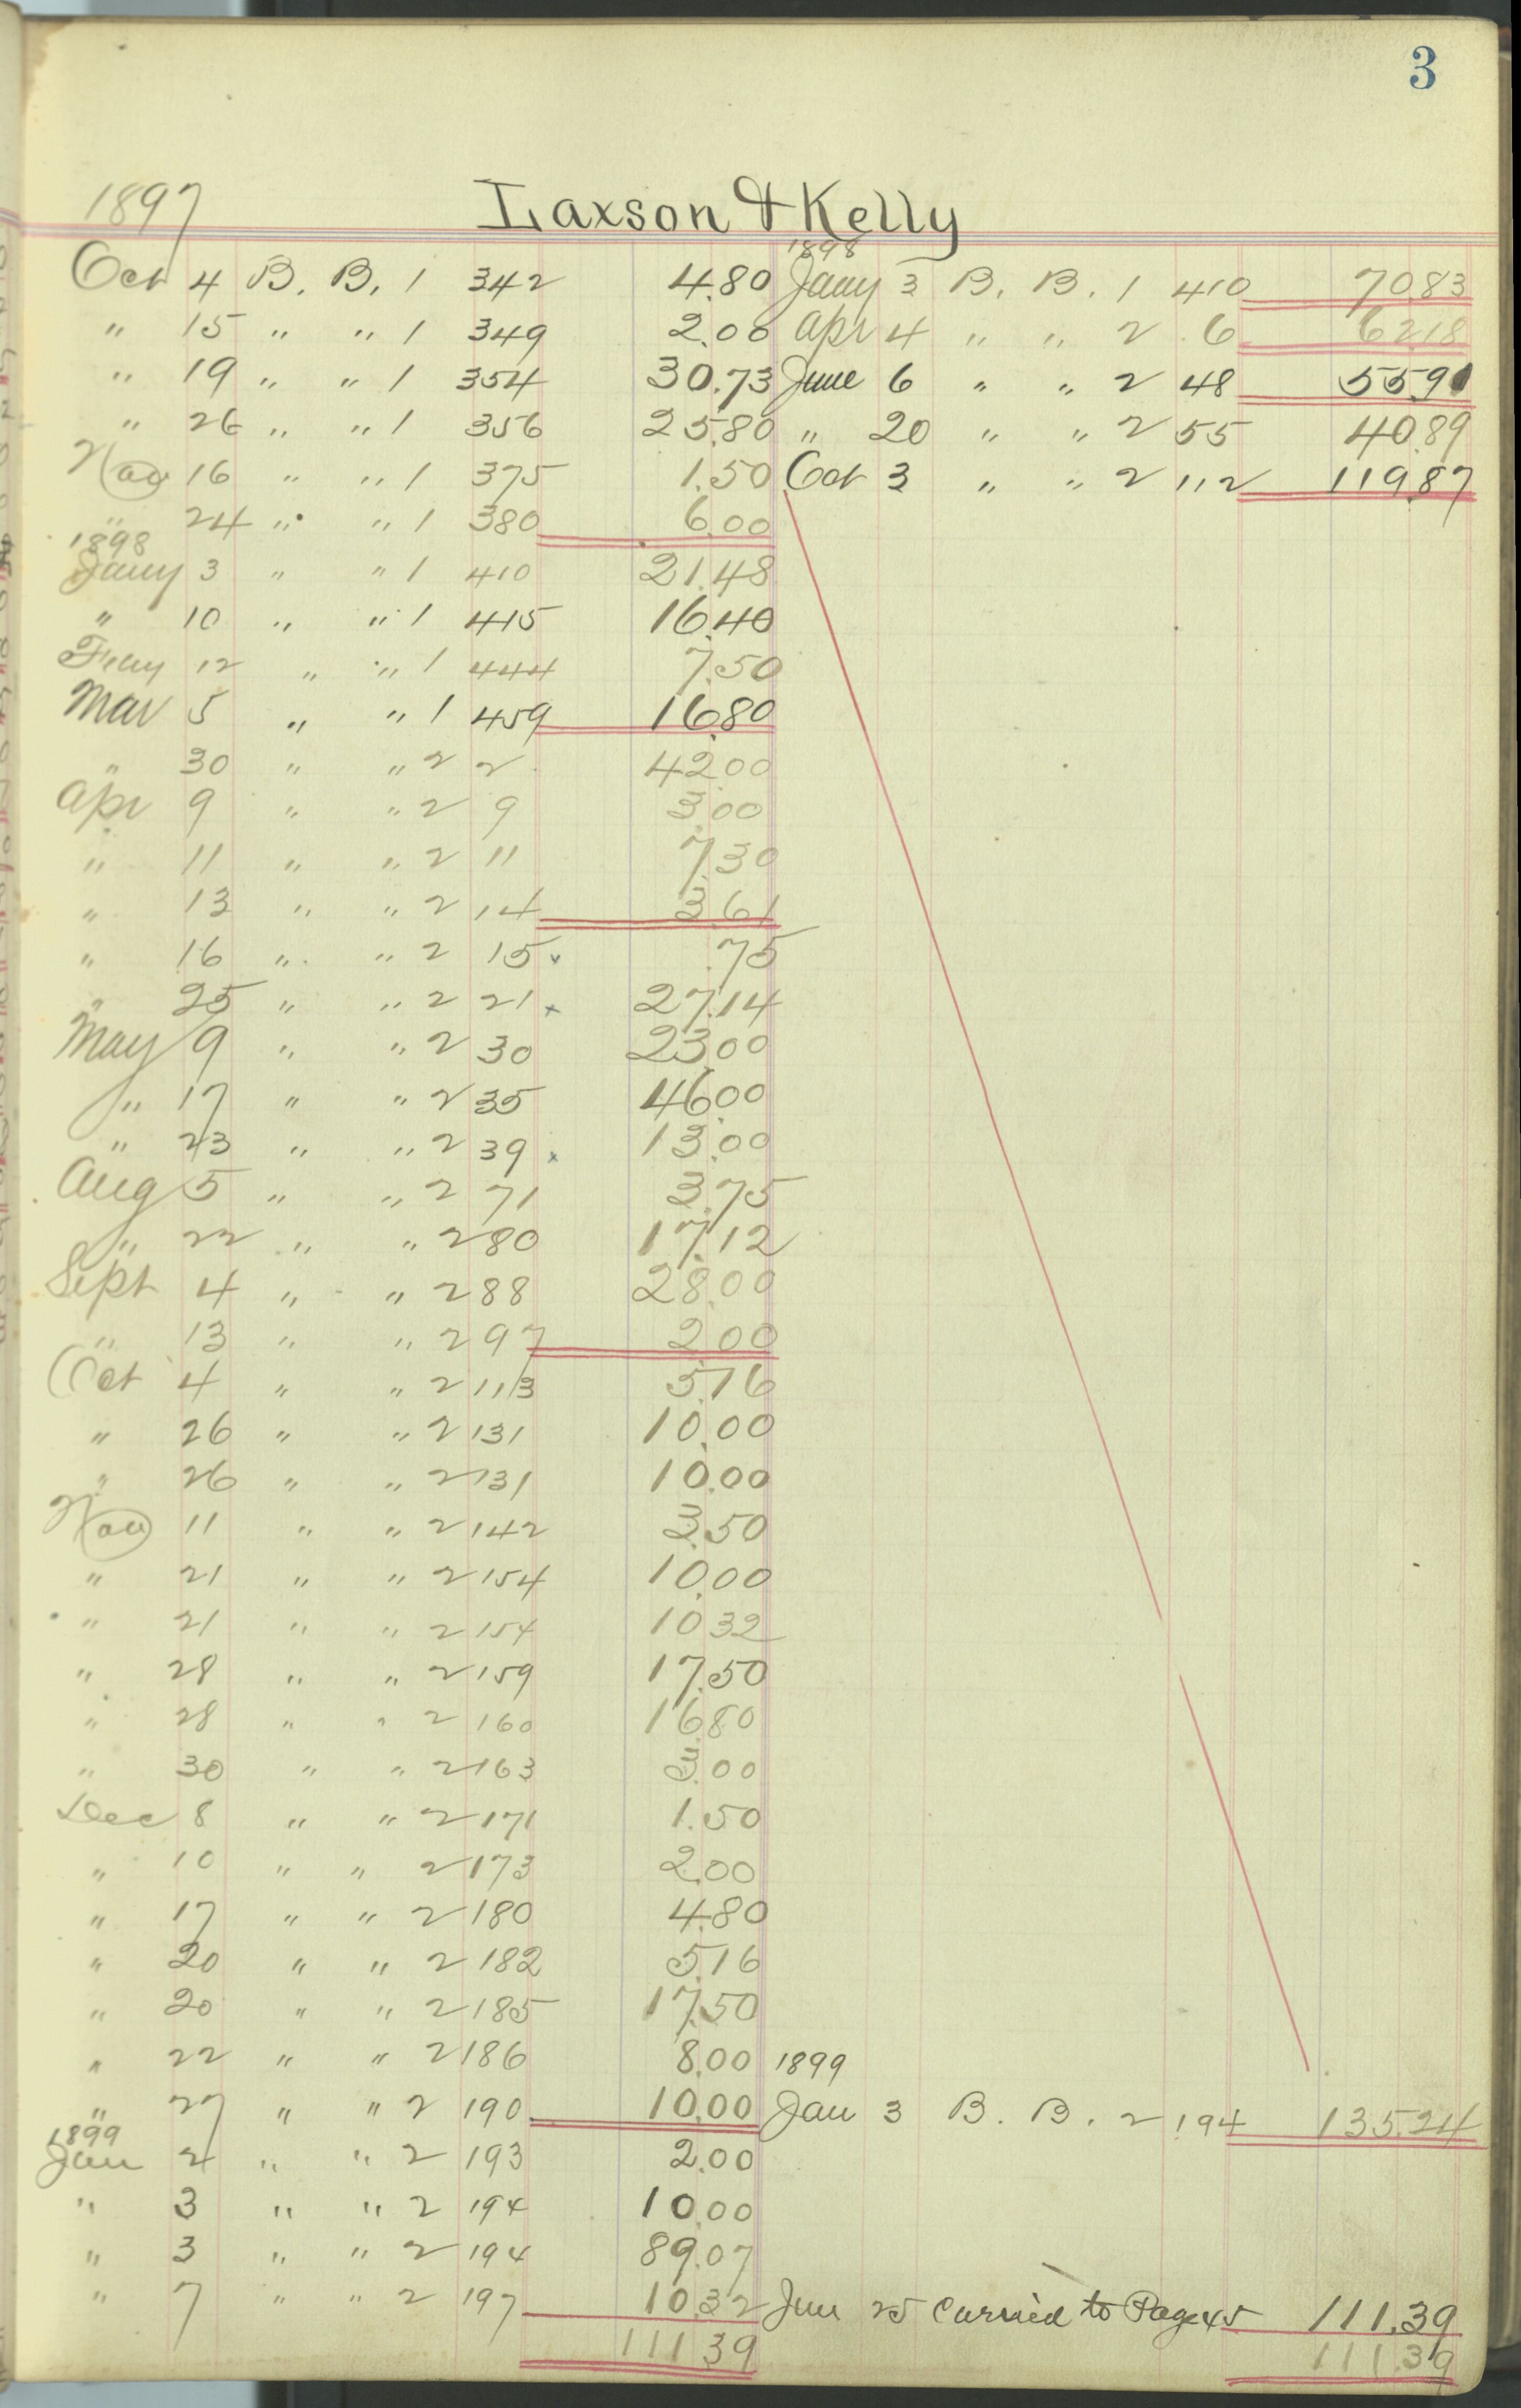 3
1897 Laxson & Kelly
1898
Oct 4 B. B. 1 342 4.80 Jany 3 B. B. 1 410 70.83
" 15 " " 1 349 2.00 Apr 4 " " 2 6 62.18
" 19 " " 1 354 30.73 June 6 " " 2 48 55.91
" 26 " " 1 356 25.80 " 20 " " 2 55 40.89
Nov 16 " " 1 375 1.50 Oct 3 " " 2 112 119.87
" 24 " " 1 380 6.00
1898
Jany 3 " " 1 410 21.48
" 10 " " 1 415 16.40
Feby 12 " " 1 444 7.50
Mar 5 " " 1 459 16.80
" 30 " " 2 2 42.00
Apr 9 " " 2 9 3.00
" 11 " " 2 11 7.30
" 13 " " 2 14 3.61
" 16 " " 2 15 x .75
" 25 " " 2 21 x 27.14
May 9 " " 2 30 23.00
" 17 " " 2 35 46.00
" 23 " " 2 39 x 13.00
Aug 5 " " 2 71 3.75
" 22 " " 2 80 17.12
Sept 4 " " 2 88 28.00
" 13 " " 2 97 2.00
Oct 4 " " 2 113 5.16
" 26 " " 2 131 10.00
" 26 " " 2 131 10.00
Nov 11 " " 2 142 3.50
" 21 " " 2 154 10.00
" 21 " " 2 154 10 32
" 28 " " 2 159 17.50
" 28 " " 2 160 16.80
" 30 " " 2 163 3.00
Dec 8 " " 2 171 1.50
" 10 " " 2 173 2.00
" 17 " " 2 180 4.80
" 20 " " 2 182 5.16
" 20 " " 2 185 17.50
" 22 " " 2 186 8.00 1899
" 27 " " 2 190 10.00 Jan 3 B. B. 2 194 135.24
1899
Jan 2 " " 2 193 2.00
" 3 " " 2 194 10.00
" 3 " " 2 194 89.07
" 7 " " 2 197 10.32 Jan 25 Carried to Page 45 111.39
111 39 111.39